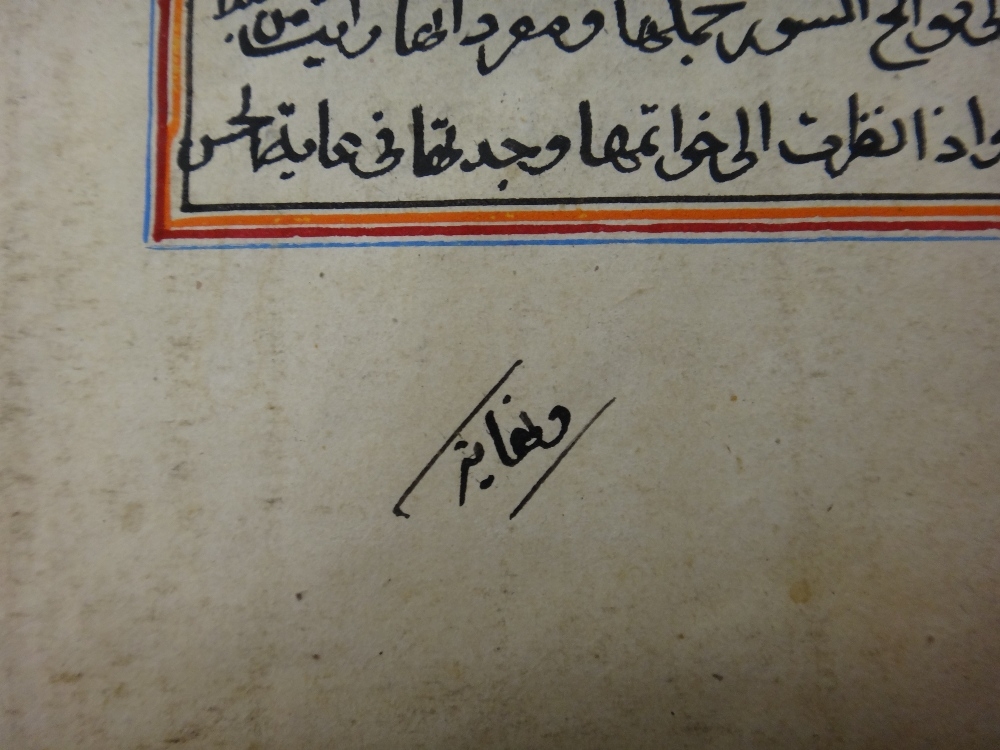 فواتح السور جملها ومفرداتها رايت من
واذا نظرت الى خواتمها وجدتها فى غاية الحسن
ونهاية